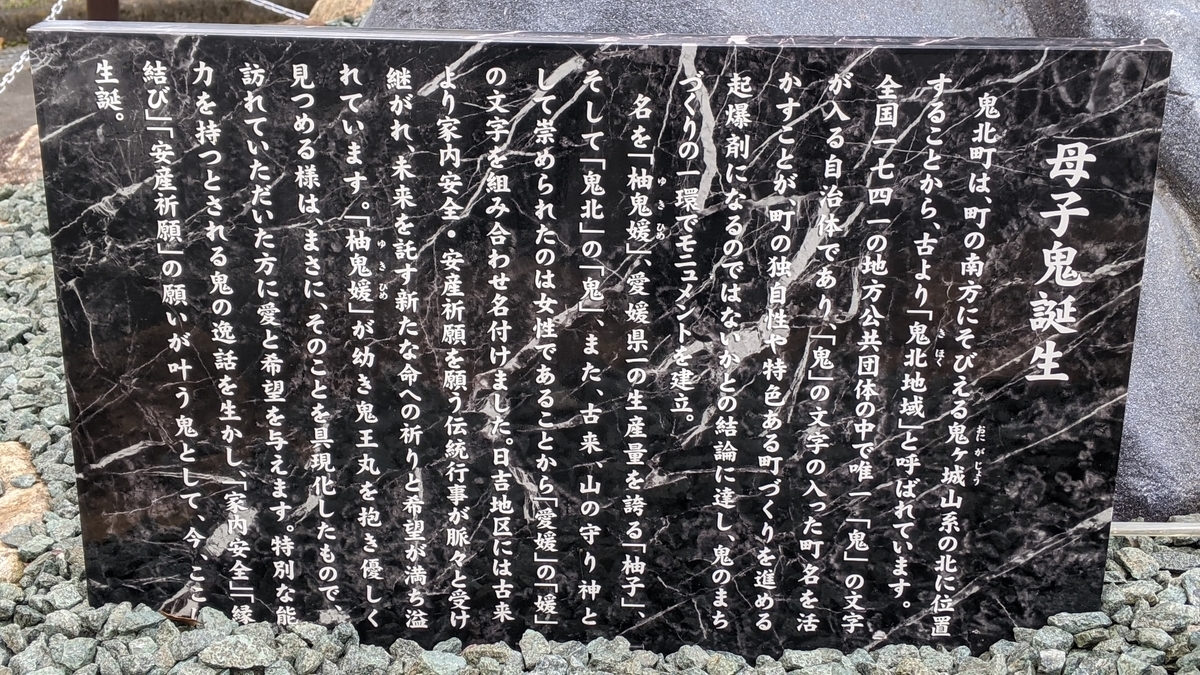 母子鬼誕生
鬼北町は、町の南方にそびえる鬼ヶ城山系の北に位置
おにがじょう
することから、古より「鬼北地域」と呼ばれています。
きほく
全国一七四一の地方公共団体の中で唯一「鬼」の文字
が入る自治体であり、「鬼」の文字の入った町名を活
かすことが、町の独自性や特色ある町づくりを進める
起爆剤になるのではないかとの結論に達し、鬼のまち
づくりの一環でモニュメントを建立。
名を「柚鬼媛」、愛媛県一の生産量を誇る「柚子」、
ゆきひめ
そして「鬼北」の「鬼」、また、古来、山の守り神と
して崇められたのは女性であることから「愛媛」の「媛」
の文字を組み合わせ名付けました。日吉地区には古来
より家内安全・安産祈願を願う伝統行事が脈々と受け
継がれ、未来を託す新たな命への祈りと希望が満ち溢
れています。「柚鬼媛」が幼き鬼王丸を抱き優しく
ゆきひめ
見つめる様は、まさに、そのことを具現化したもので、
訪れていただいた方に愛と希望を与えます。特別な能
力を持つとされる鬼の逸話を生かし、「家内安全」「縁
結び」「安産祈願」の願いが叶う鬼として、今、ここに
生誕。